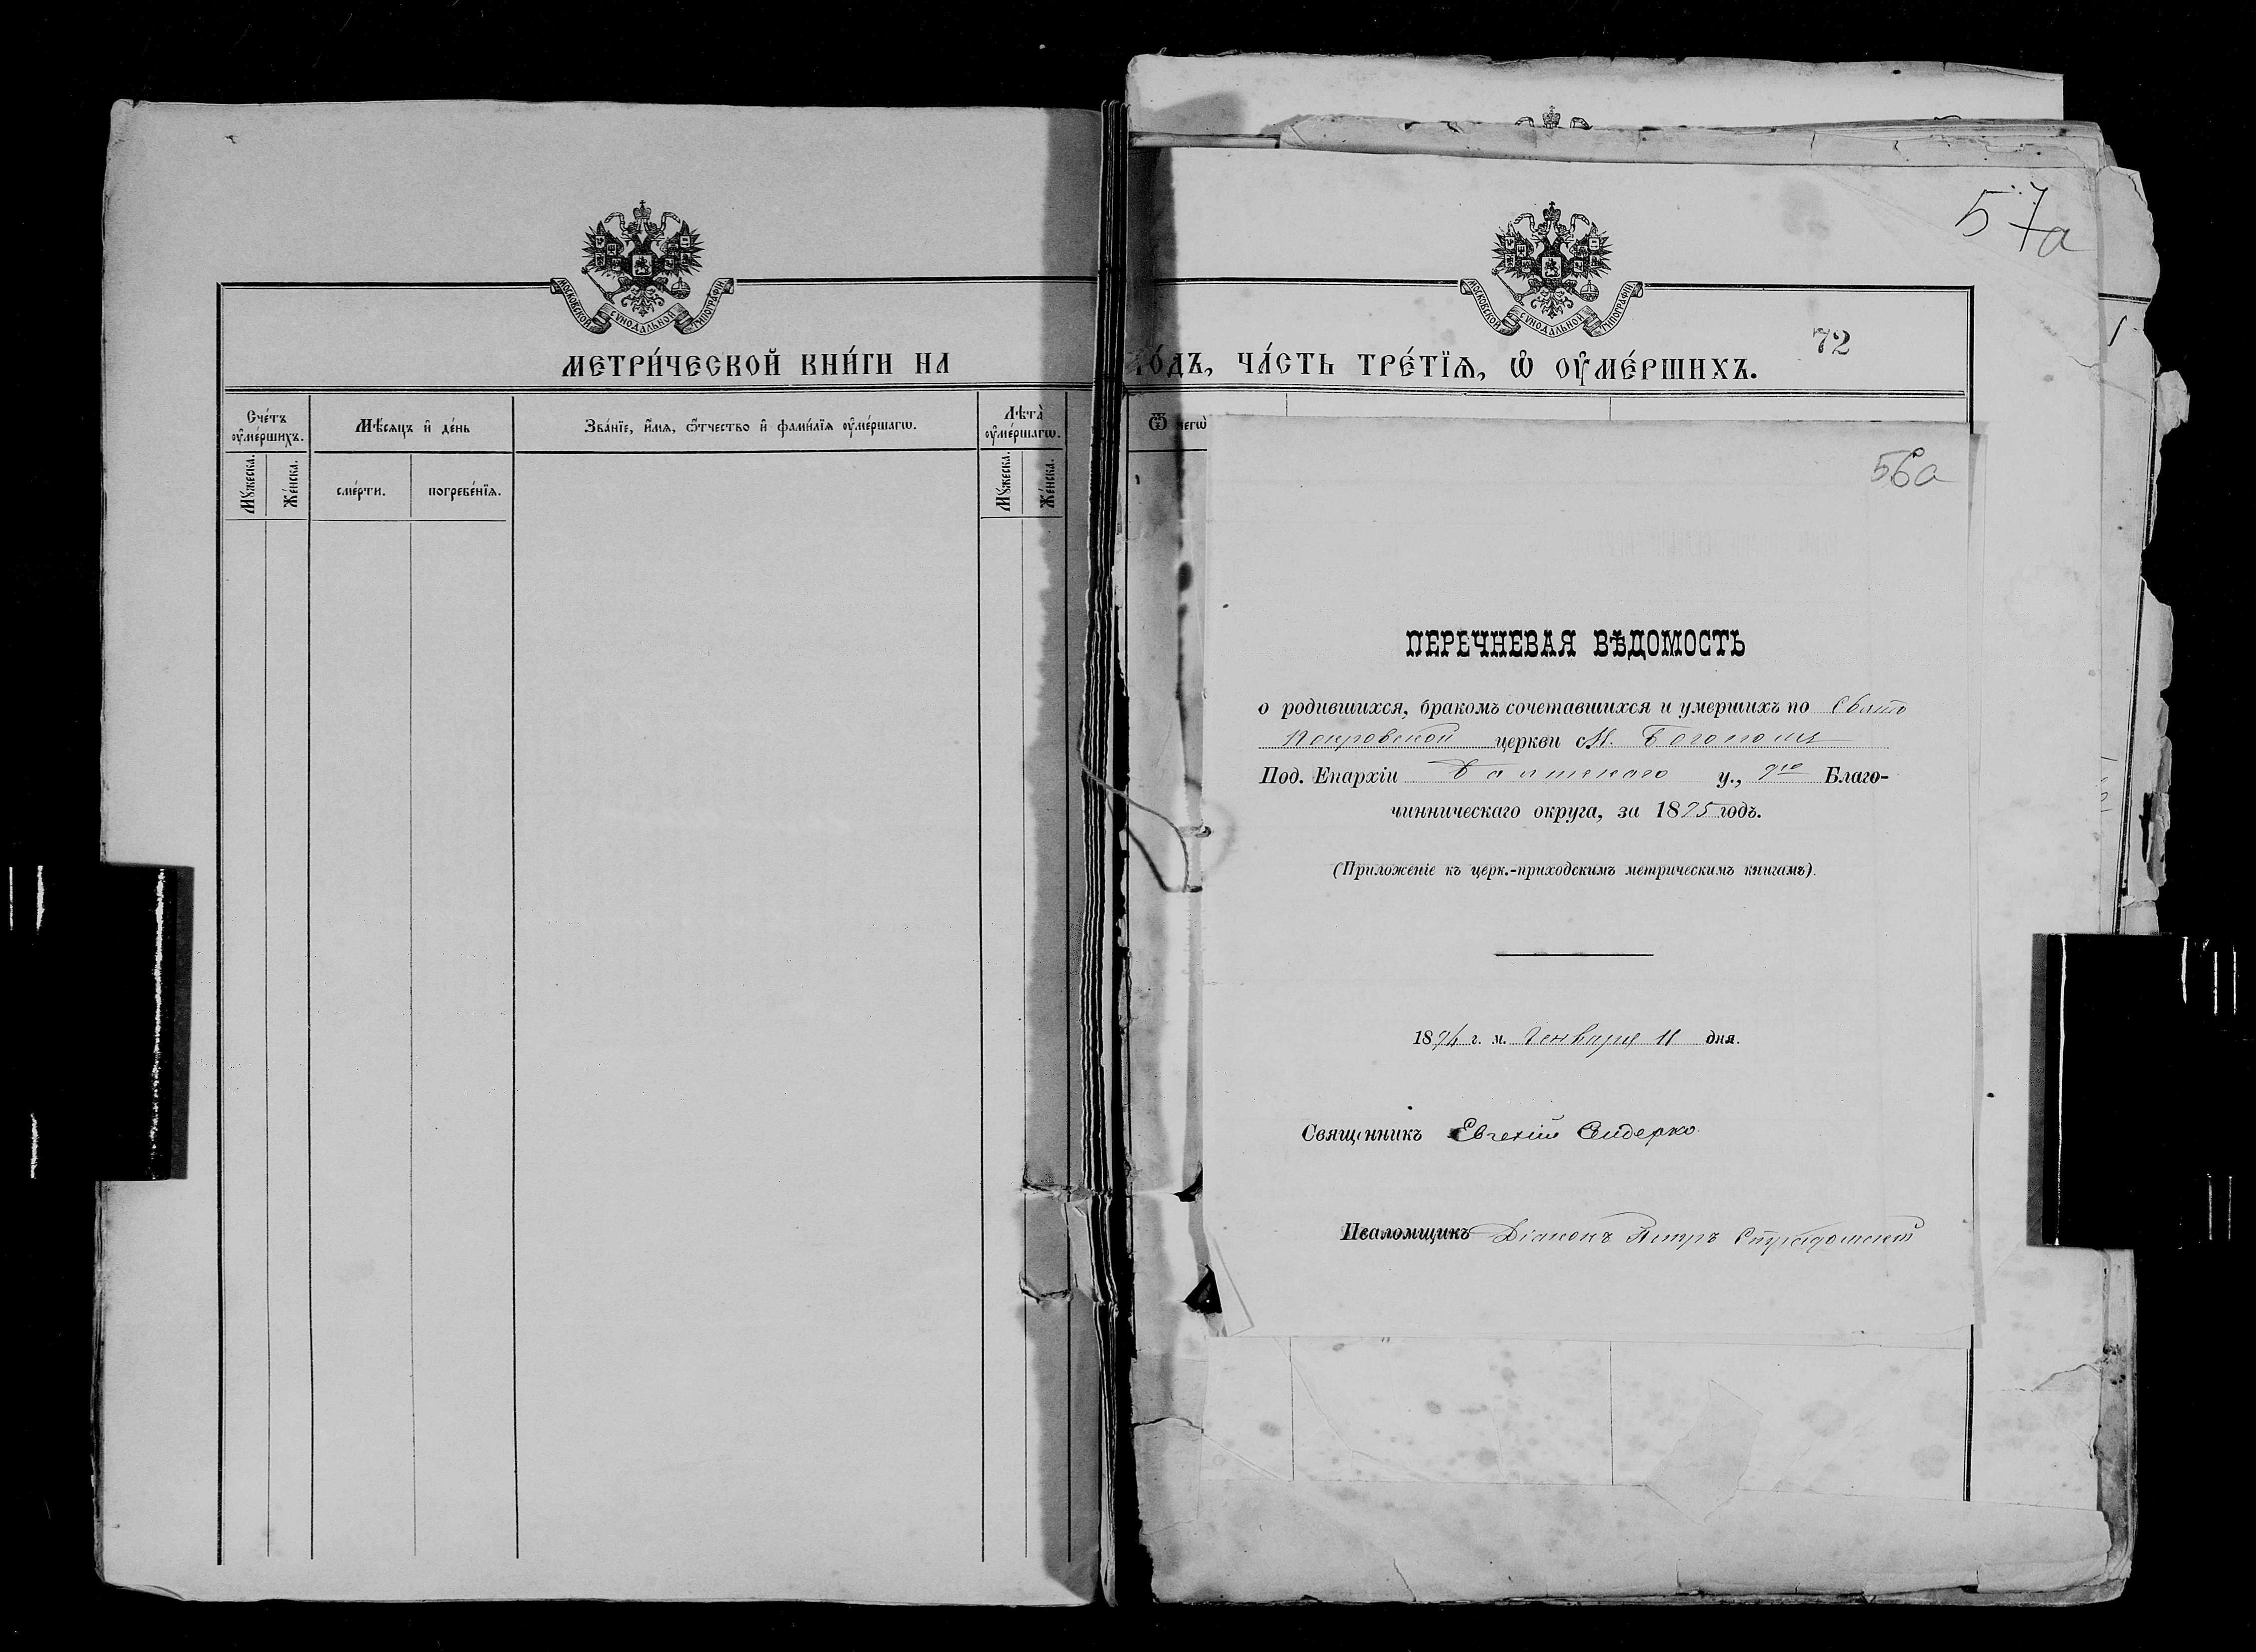 МОСКОВСКОЙ СѴНОДАЛЬНОЙ ТИПОГРАФІИ
МЕТРИ́ЧЕСКОЙ КНИ́ГИ НА
Сче́тъ ᲂу҆ме́ршихъ.
Мѣ́сяцъ и҆ де́нь
Зва́нїе, и҆́мѧ, ѻ҆́тчество и҆ фами́лїѧ ᲂу҆ме́ршагѡ.
Лѣта̀ ᲂу҆ме́ршагѡ.
Мꙋ́жеска.
Же́нска.
сме́рти.
погребе́нїѧ.
Мꙋ́жеска.
Же́нска.
57а
МОСКОВСКОЙ СѴНОДАЛЬНОЙ ТИПОГРАФІИ
72
го́дъ, ЧА́СТЬ ТРЕ́ТЇѦ, Ѡ҆ ОУ҆МЕ́РШИХЪ.
Ѿ чегѡ̀
56а
ПЕРЕЧНЕВАЯ ВѢДОМОСТЬ
о родившихся, бракомъ сочетавшихся и умершихъ по Свято
Покровской церкви с М. Богополя
Под. Епархіи Балтскаго у., 9го Благо-
чинническаго округа, за 1895 годъ.
(Приложеніе къ церк.-приходскимъ метрическимъ книгамъ).
1896 г. м. Генваря 11 дня.
Священникъ Евгеній Сидерко
Псаломщикъ Діаконъ Петръ